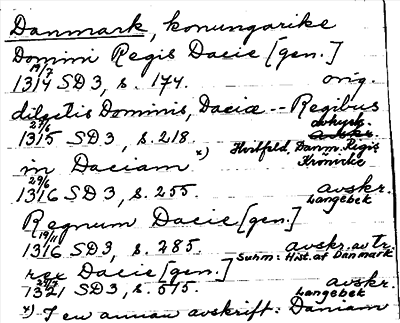 Danmark, konungarike
Domini Regis Dacie [gen.]
19/7
1314 SD 3, s. 174. orig.
dilectis Dominis, Daciæ -- Regibus
1315 SD 3, s. 218. avtryck.
Hvitfeld, Danm. Rigis
Krönicke
in Daciam x)
29/6
1316 SD 3, s. 255 avskr.
Langebek
Regnum Dacie [gen.]
19/11
1316 SD 3, s. 285. avskr. av tr.
Suhm: Hist. af Danmark
rex Dacie [gen.]
1321 SD 3, s. 515. avskr.
Langebek
x) I en annan avskrift: Daniam